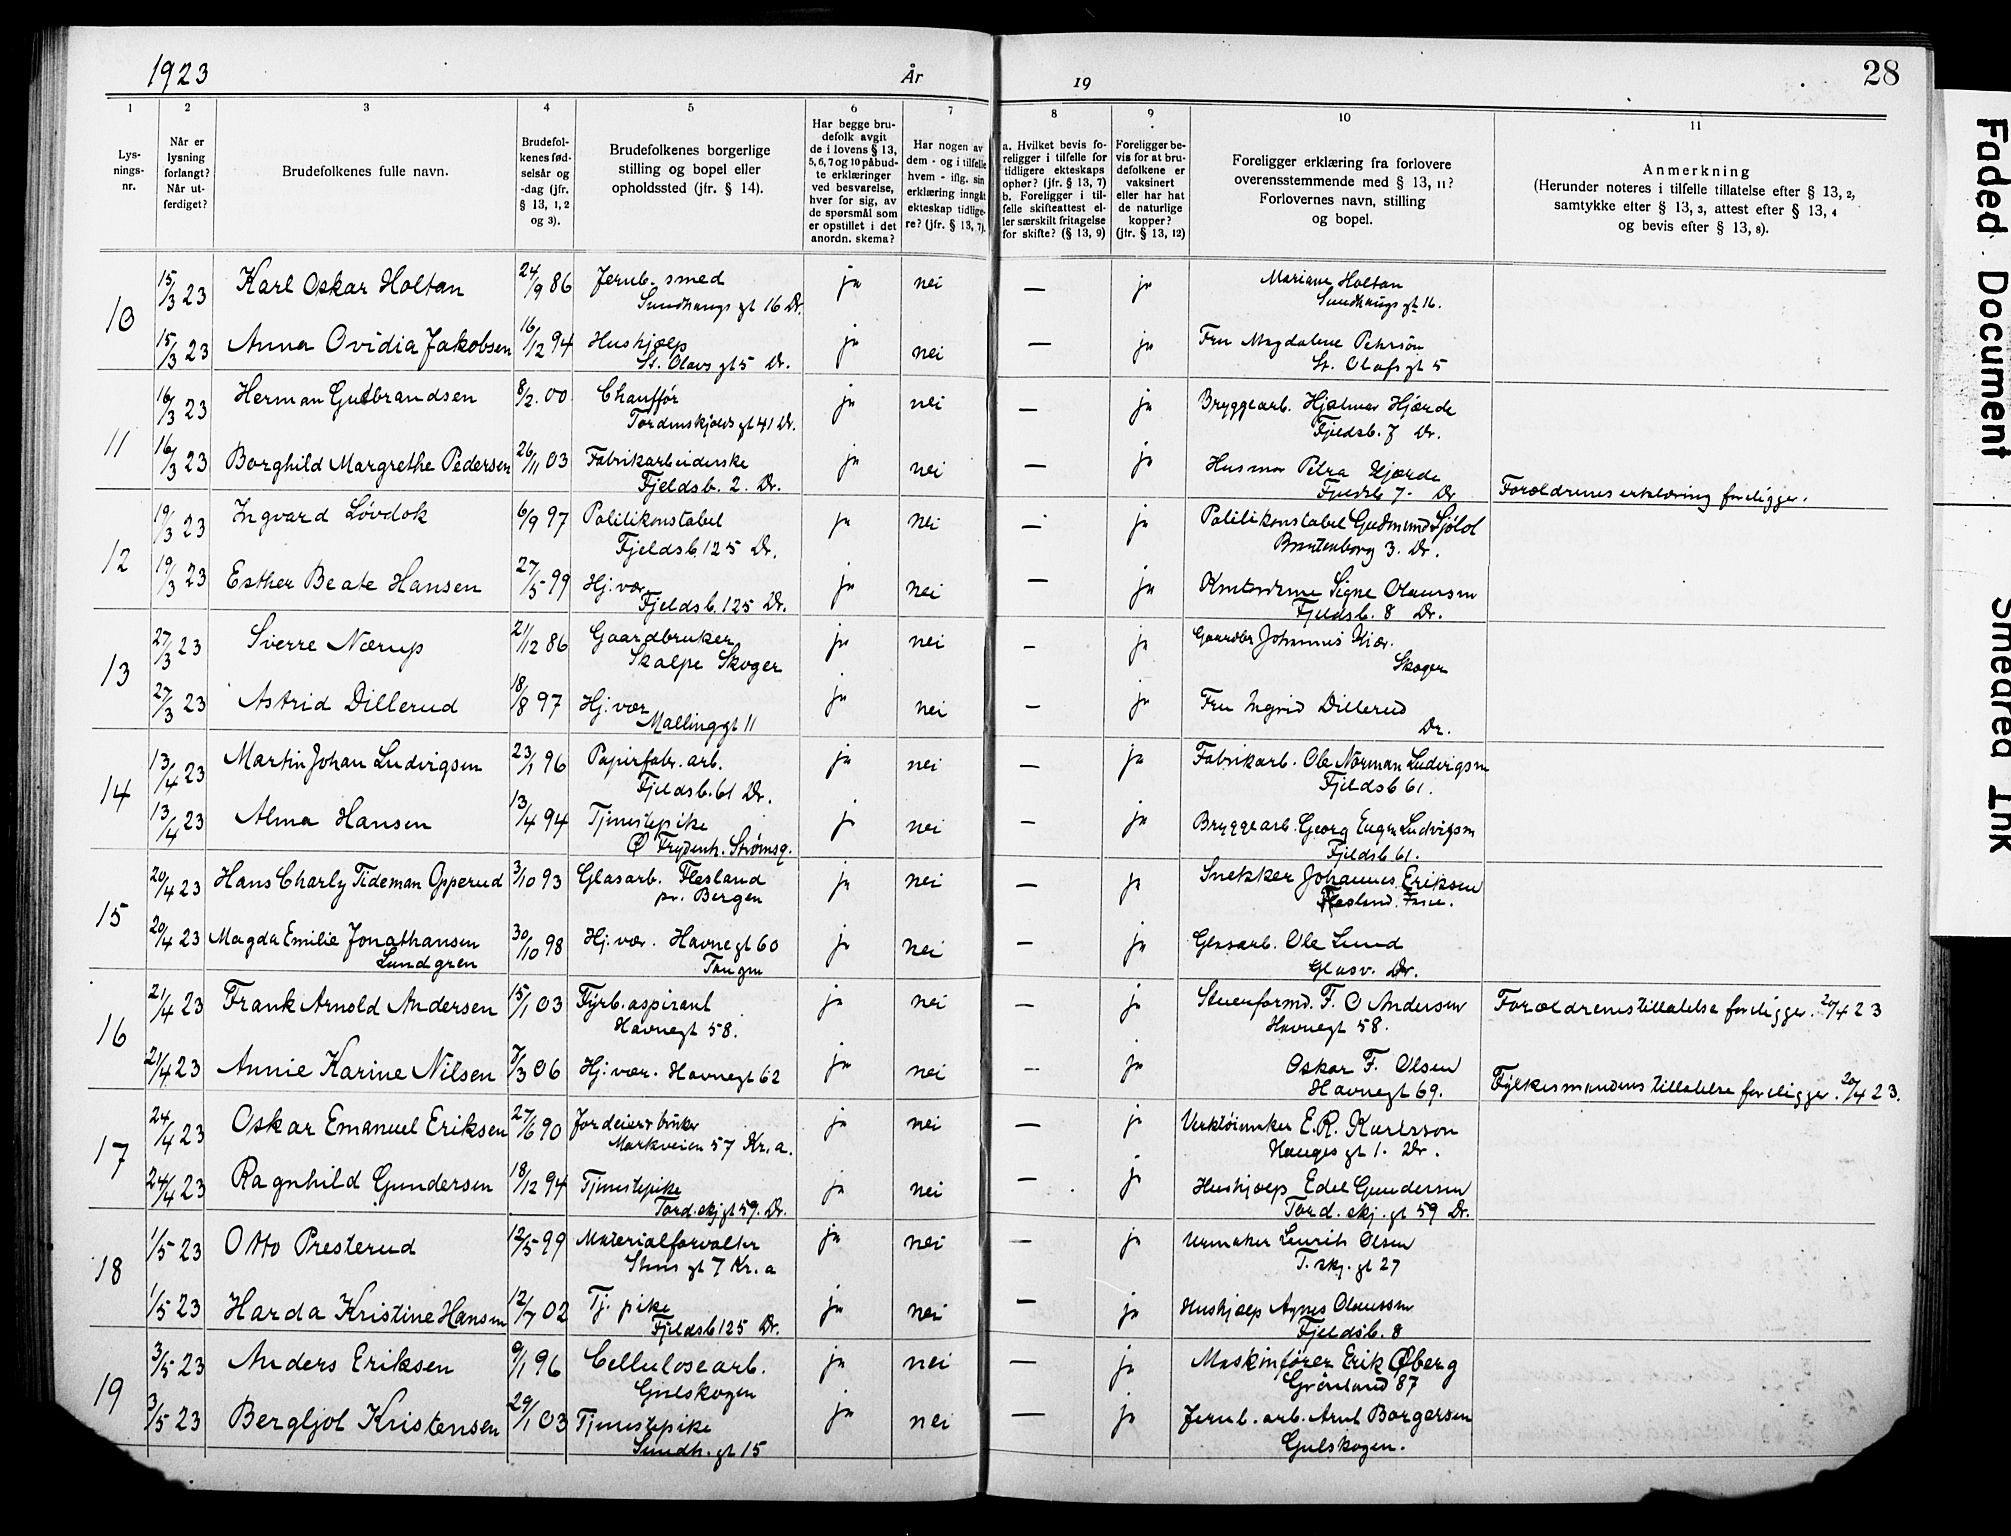 1923 År 19 28
1 2 3 4 5 6 7 8 9 10 11
Lysningsnr.
Når er lysning forlangt? Når utferdiget?
Brudefolkenes fulle navn.
Brudefolkenes fødselsår og -dag (jfr. § 13, 1, 2 og 3).
Brudefolkenes borgerlige stilling og bopel eller opholdssted (jfr. § 14).
Har begge brudefolk avgit de i lovens § 13, 5, 6, 7 og 10 påbudte erklæringer ved besvarelse, hver for sig, av de spørsmål som er opstillet i det anordn. skema?
Har nogen av dem - og i tilfelle hvem - iflg. sin erklæring inngåt ekteskap tidligere? (jfr. § 13, 7).
a. Hvilket bevis foreligger i tilfelle for tidligere ekteskaps ophør? (jfr. § 13, 7) b. Foreligger i tilfelle skifteattest eller særskilt fritagelse for skifte? (§ 13, 9)
Foreligger bevis for at brudefolkene er vaksinert eller har hat de naturlige kopper? (jfr. § 13, 12)
Foreligger erklæring fra forlovere overensstemmende med § 13, 11? Forlovernes navn, stilling og bopel.
Anmerkning (Herunder noteres i tilfelle tillatelse efter § 13, 2, samtykke efter § 13, 3, attest efter § 13, 4 og bevis efter § 13, 8).
10 15/3 23 Karl Oskar Holtan 24/9 86 Jernb. smed ja nei — ja Mariane Holtan
Sundhaugs gt 16 Dr. Sundhaugs gt 16.
15/3 23 Anna Ovidia Jakobsen 16/12 94 Hushjælp ja nei — ja Fru Magdalene Petersøn
St. Olavs gt 5 Dr. St. Olafs gt 5
11 16/3 23 Herman Gulbrandsen 8/2. 00 Chauffør ja nei — ja Bryggearb. Hjalmar Hjærde
Tordenskjolds gt 41 Dr. Fjeldsb. 7 Dr.
16/3 23 Borghild Margrethe Pedersen 26/11 03 Fabrikarbeiderske ja nei — ja Husmor Petra Hjærde
Fjeldsb. 2. Dr. Fjeldsb 7. Dr Forældrenes erklæring foreligger.
12 19/3 23 Ingvard Løvdok 6/9 97 Politikonstabel ja nei — ja Politikonstabel Gudmund Sjølol
Fjeldsb. 125 Dr. Brantenborg 3. Dr.
19/3 23 Esther Beate Hansen 27/5 99 Hj. vær. ja nei — ja Kontordame Signe Olaussen
Fjeldsb. 125 Dr. Fjeldsb. 8 Dr.
13 27/3 23 Sverre Nærup 21/12 86 Gaardbruker ja nei — ja Gaardbr Johannes Kiær.
Skalpe Skoger Skoger
27/3 23 Astrid Dillerud 18/8 97 Hj. vær ja nei — ja Fru Ingrid Dillerud
Mallinggt 11 Dr.
14 13/4 23 Martin Johan Ludvigsen 23/1 96 Papirfabr. arb. ja nei — ja Fabrikarb. Ole Norman Ludvigsen
Fjeldsb. 61 Dr. Fjeldsb 61.
13/4 23 Alma Hansen 13/4 94 Tjenestepike ja nei — ja Bryggearb. Georg Eugen Ludvigsen
Ø Frydenh. Strømsg. Fjeldsb 61.
15 20/4 23 Hans Charly Tideman Opperud 3/10 93 Glasarb. Flesland ja nei — ja Snekker Johannes Eriksen
pr. Bergen Flesland. Fane.
20/4 23 Magda Emilie Jonathansen 30/10 98 Hj. vær. Havnegt 60 ja nei — ja Glasarb. Ole Lund
Lundgren Tangen Glasv. Dr.
16 21/4 23 Frank Arnold Andersen 15/1 03 Fyrb. aspirant ja nei — ja Stuenformd. F. O Andersen Forældrenes tillatelse foreligger. 20/4 23
Havnegt 58. Havnegt 58.
21/4 23 Annie Karine Nilsen 7/3 06 Hj. vær. Havnegt 62 ja nei — ja Oskar F. Olsen
Havnegt 69. Fylkesmandens tillatelse foreligger. 20/4 23.
17 24/4 23 Oskar Emanuel Eriksen 27/6 90 Jordeierbruker ja nei — ja Verktøimaker E. R. Karlsson
Markveien 57 Kr.a. Hauges gt 1. Dr.
24/4 23 Ragnhild Gundersen 18/12 94 Tjenestepike ja nei — ja Hushjælp Edel Gundersen
Tord. skj gt 59. Dr. Tord. skj. gt 59 Dr.
18 1/5 23 Otto Presterud 12/5 99 Materialforvalter ja nei — ja Urmaker Laurits Olsen
Stens gt 7 Kr. a T. skj. gt 27
1/5 23 Harda Kristine Hansen 12/7 02 Tj. pike ja nei — ja Hushjælp Agnes Olaussen
Fjeldsb 125 Dr. Fjeldsb. 8
19 3/5 23 Anders Eriksen 9/1 96 Cellulosearb. ja nei — ja Maskinfører Erik Øberg
Gulskogen Grønland 87
3/5 23 Bergljot Kristensen 29/1 03 Tjenestepike ja nei — ja Jernb. arb. Arnt Borgersen
Sundh. gt 15 Gulskogen.
Faded Document
Smeared Ink